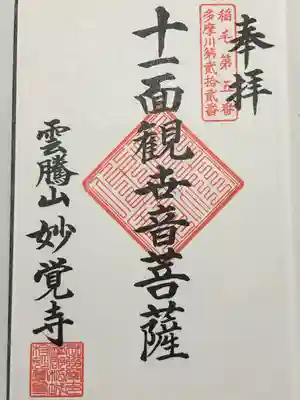 奉拝
稲毛第五番
多摩川第貳拾貳番
十一面観世音菩薩
雲騰山妙覚寺